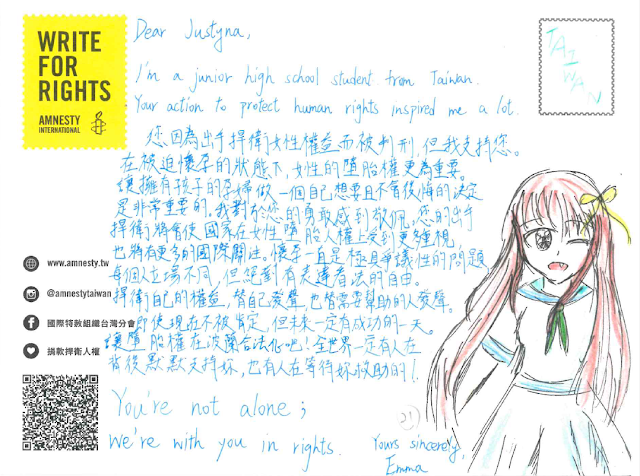 WRITE
FOR
RIGHTS
AMNESTY
INTERNATIONAL
TAIWAN
Dear Justyna,
I'm a junior high school student from Taiwan.
Your action to protect human rights inspired me a lot.
您因為出手捍衛女性權益而被判刑,但我支持您。
在被迫懷孕的狀態下,女性的墮胎權更為重要。
讓擁有孩子的孕婦做一個自己想要且不會後悔的決定
是非常重要的。我對於您的勇敢感到敬佩。您的出手
捍衛將會使國家在女性墮胎人權上受到更多重視,
也將有更多的國際關注。懷孕一直是極具爭議性的問題
每個人立場不同,但絕對有表達看法的自由。
捍衛自己的權益,替自己發聲,也替需要幫助的人發聲。
即使現在不被肯定,但未來一定有成功的一天。
讓墮胎權在波蘭合法化吧!全世界一定有人在
背後默默支持妳,也有人在等待妳救助的!
You're not alone;
We're with you in rights.
21
Yours sincerely,
Emma
www.amnesty.tw
@amnestytaiwan
國際特赦組織台灣分會
捐款捍衛人權